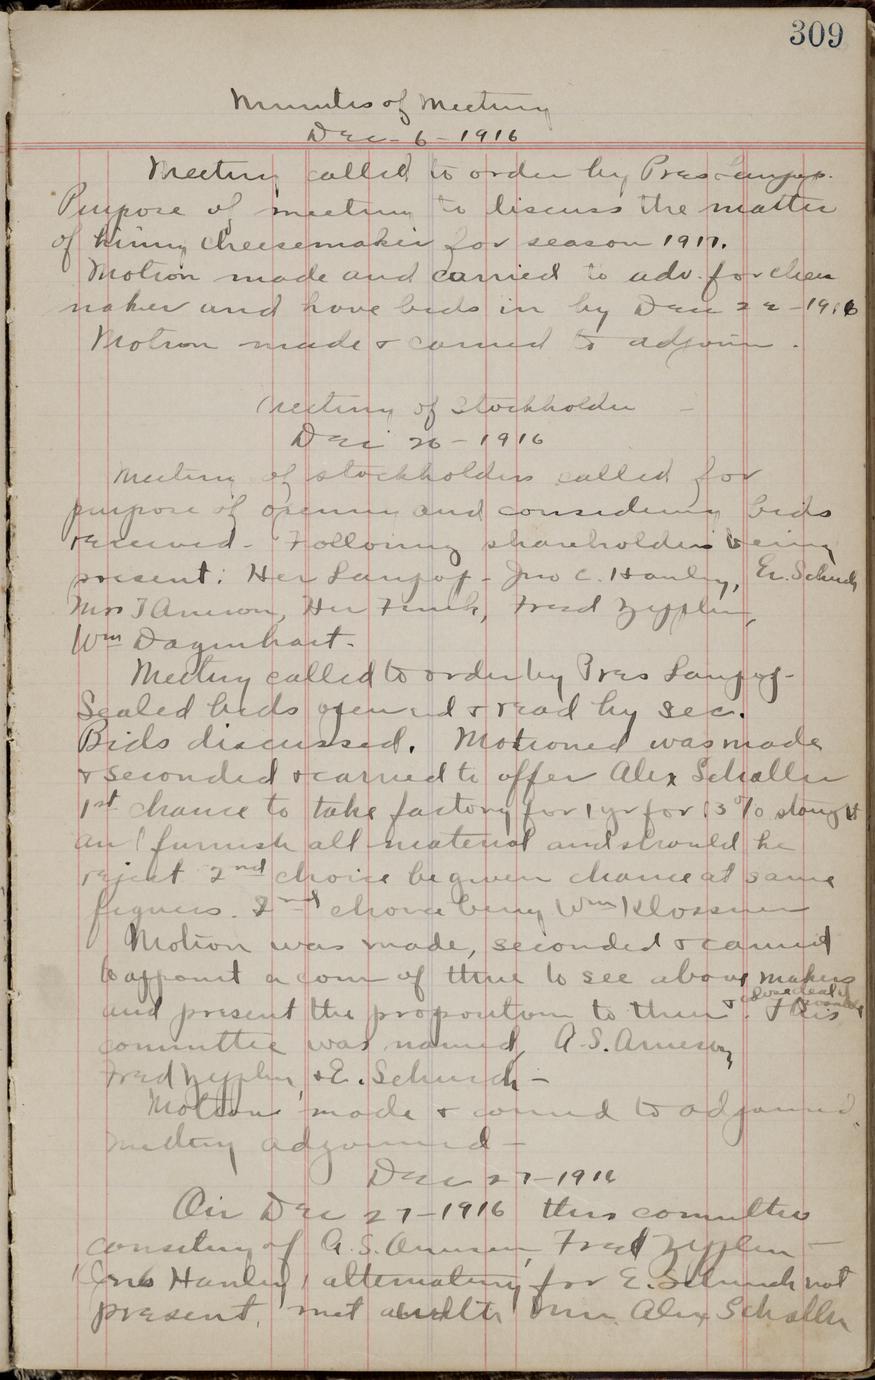 309
Minutes of Meeting
Dec - 6 - 1916
Meeting called to order by Pres Lanjop.
Purpose of meeting to discuss the matter
of hiring cheesemaker for season 1917.
Motion made and carried to adv. for chees
maker and have bids in by Dec 22 - 1916
Motion made & carried to adjourn.
Meeting of Stockholder
Dec 26 - 1916
Meeting of stockholders called for
purpose of opening and considering bids
received - Following shareholders being
present: Her Lanjop - Jno C. Hanley, Er. Schuch
Mrs T Arneson, Her Finck, Fred Zypplin,
Wm Dagenhart.
Meeting called to order by Pres Lanjop -
Sealed bids opened & read by sec.
Bids discussed. Motioned was made
& seconded & carried to offer Alex Schaller
1st chance to take factory for 1 yr for 13%
and furnish all material and should he
reject 2nd choice be given chance at same
figuers. 2nd choice being Wm Klossner
Motion was made, seconded & carried
to appoint a com of three to see above makers
and present the proposition to them & close deal if possible. This
committee was named, A.S. Arneson,
Fred Zypplin, & E. Schuch -
Motion made & carried to adjourned.
Meeting adjourned -
Dec 27 - 1916
On Dec 27 - 1916 this committee
consiting of A.S. Arneson, Fred Zypplin -
(Jno Hanley) alternating for E. Schuch not
present, met Alex Schaller